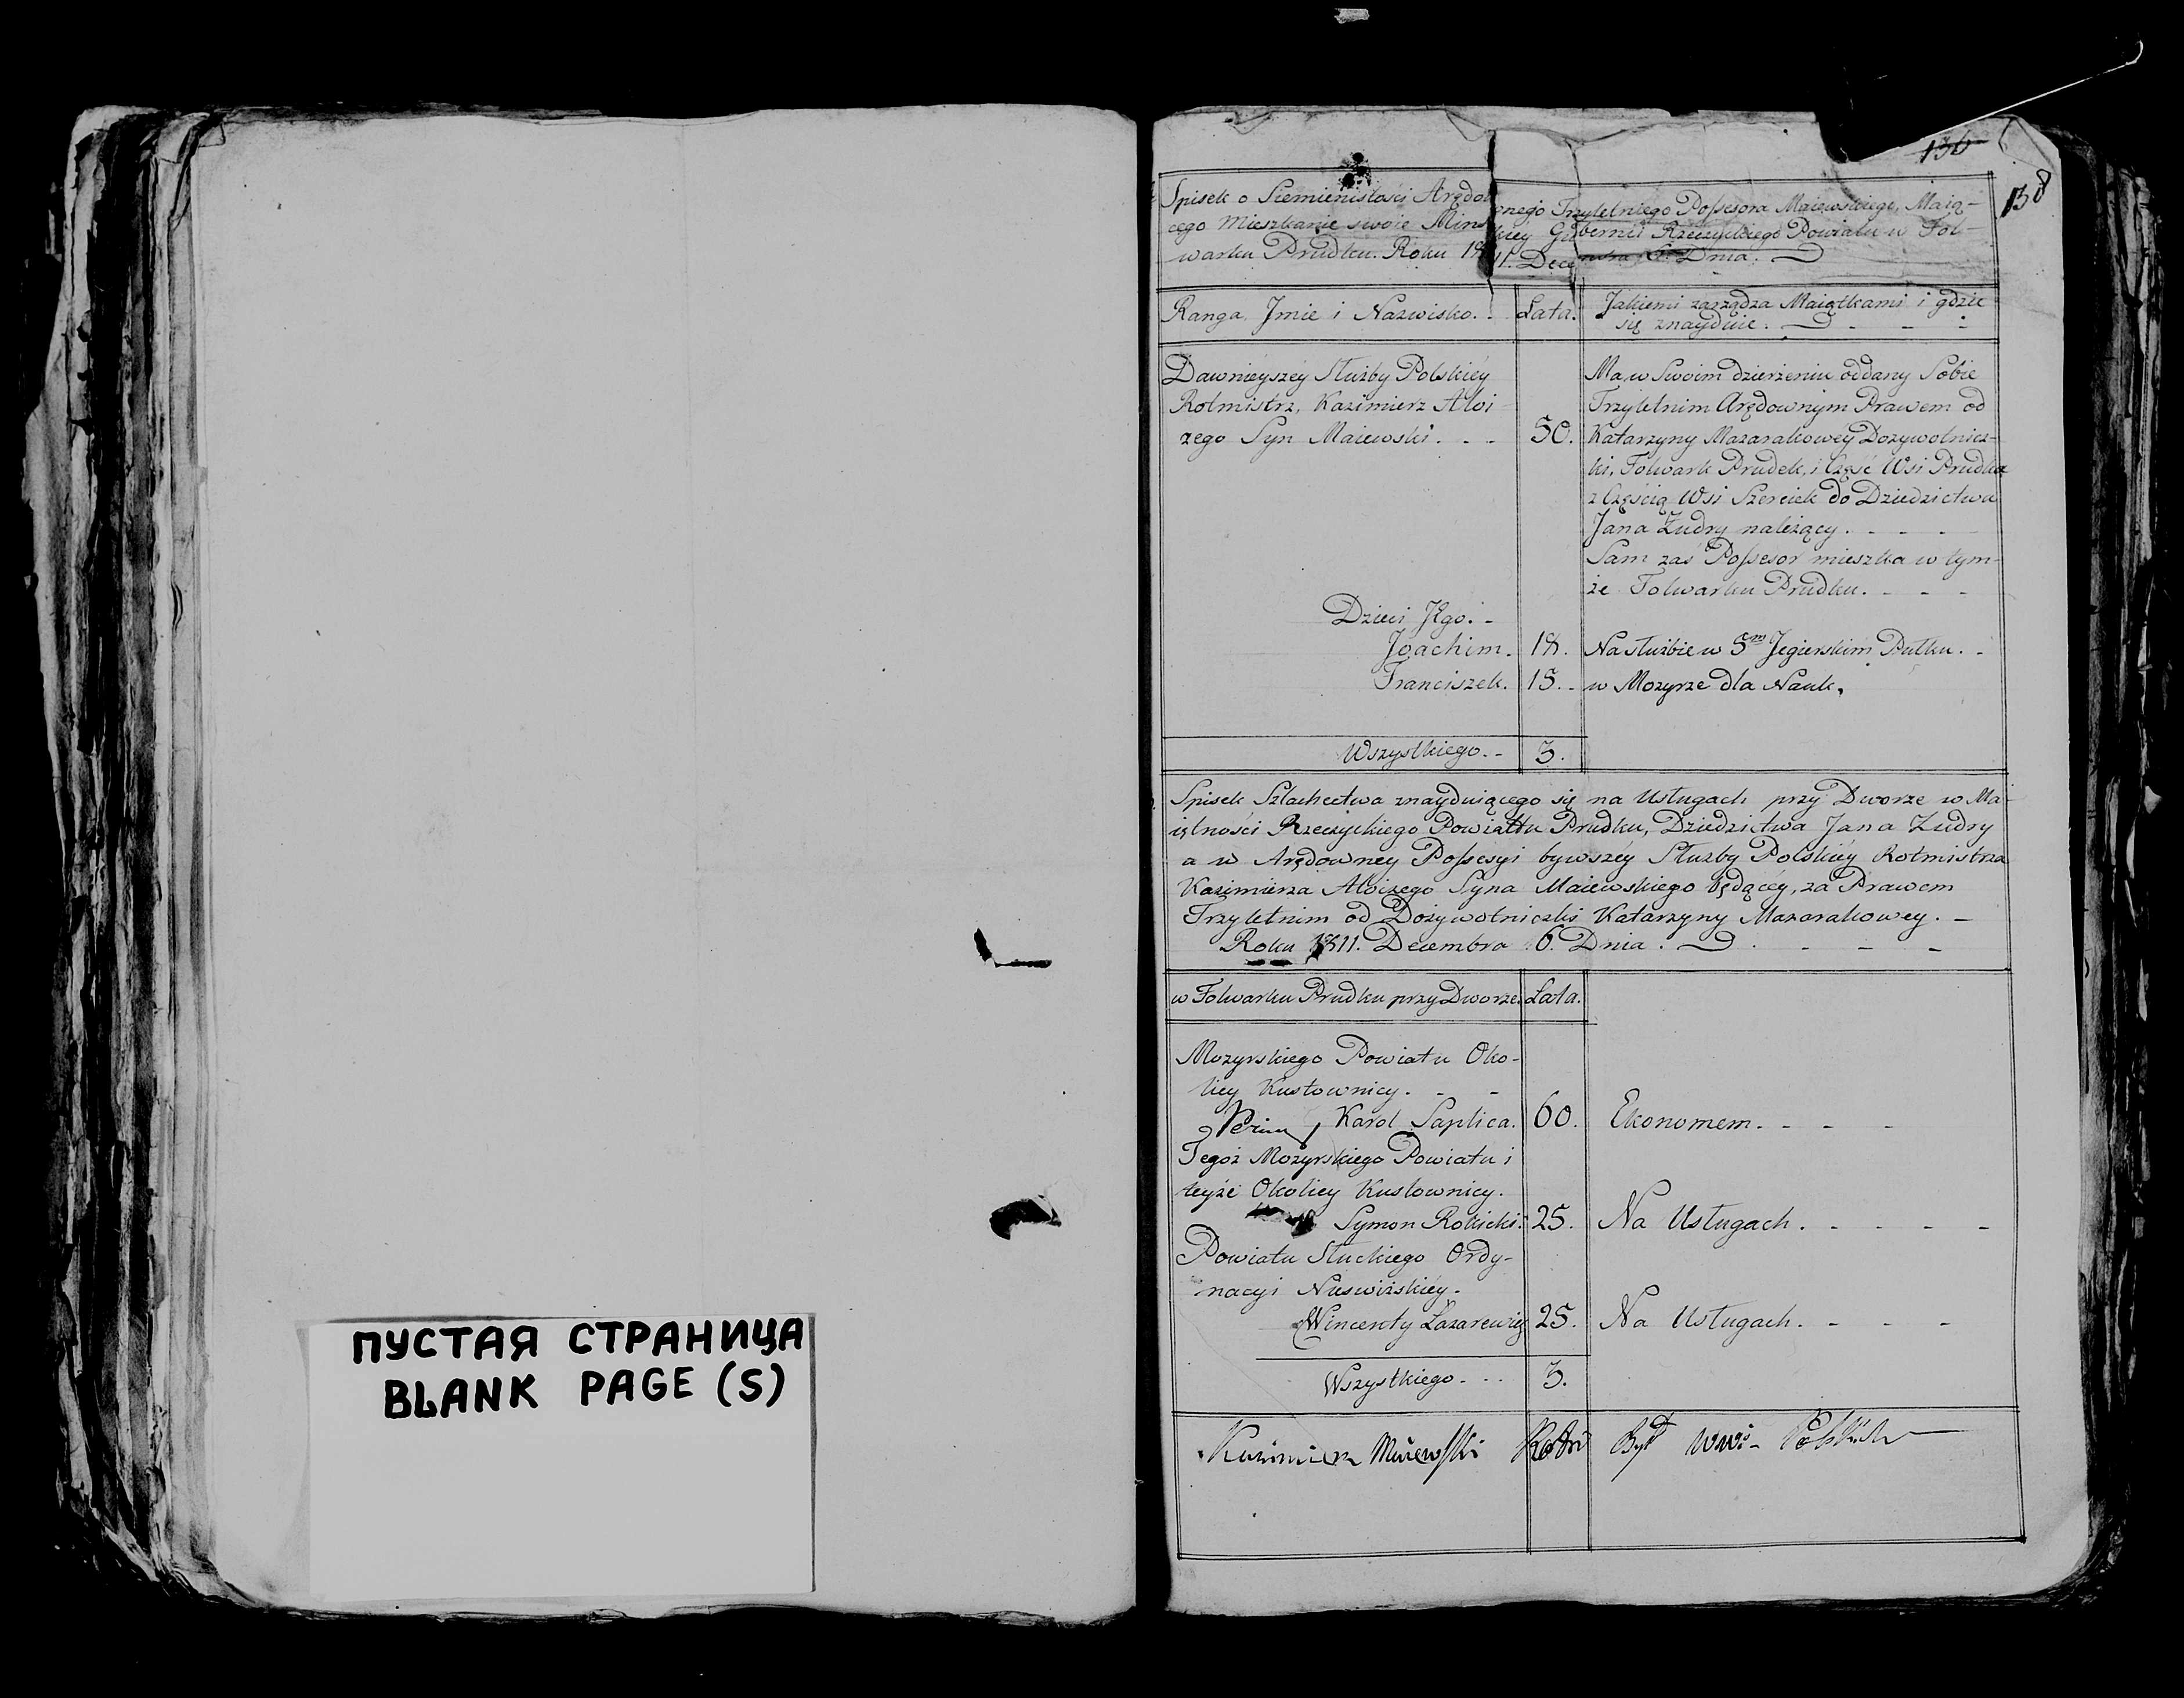 ПУСТАЯ СТРАНИЦА
BLANK PAGE (S)
136
138
Spisek o Siemienistości Arędownego Trzyletniego Possesora Maiewskiego, Maią-
cego Mieszkanie swoie Minskiey Gubernii Rzeczyckiego Powiatu w Fol-
warku Prudku. Roku 1811. Decembra 6. Dnia.
Ranga Jmie i Nazwisko. Lata. Jakiemi zarządza Maiątkami i gdzie
się znayduie.
Dawnieyszéy Służby Polskiéy
Rotmistrz, Kazimierz Aloi
zego Syn Maiewski. 50.
Ma w Swoim dzierżeniu oddany Sobie
Trzyletnim Arędownym Prawem od
Katarzyny Mazarakowéy Dozywotnicz-
ki, Folwark Prudek, i Część Wsi Prudka
z Częścią Wsi Szerciek do Dziedzictwa
Jana Żudry należący.
Sam zaś Possesor mieszka w tym-
że Folwarku Prudku.
Dzieci Jego. -
Joachim. 18. Na służbie w 5m Jegierskim Pułku. -
Franciszek. 15. - w Mozyrze dla Nauk.
Wszystkiego. - 3.
Spisek Szlachectwa znayduiącego się na Usługach przy Dworze w Ma-
iętności Rzeczyckiego Powiattu Prudku, Dziedzictwa Jana Zudry
a w Arędowney Possesyi bywszéy Służby Polskiéy Rotmistrza
Kazimierza Aloizego Syna Maiewskiego będącéy, za Prawem
Trzyletnim od Dożywotniczki Katarzyny Mazarakowey. -
Roku 1811. Decembra 6. Dnia.
w Folwarku Prudku przy Dworze. Lata.
Mozyrskiego Powiatu Oko-
licy Kustownicy.
Karol Saplica. 60. Ekonomem.
Tegoż Mozyrskiego Powiatu i
teyże Okolicy Kustownicy.
Symon Rokicki. 25. Na Usługach.
Powiatu Słuckiego Ordy-
nacyi Nieswiżskiéy.
Wincenty Łazarewicz 25. Na Usługach.
Wszystkiego. 3.
Kazimierz Maiewski